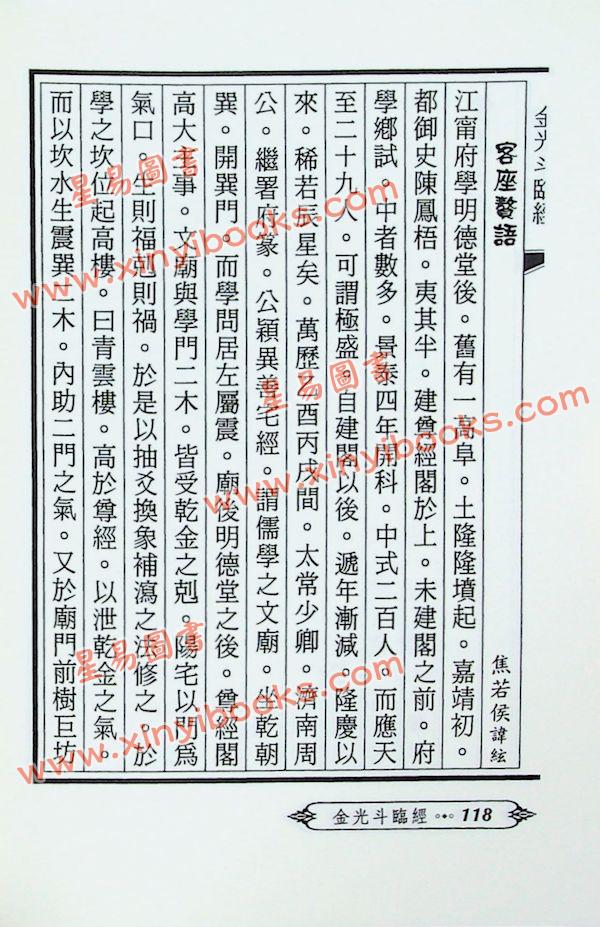 金光斗臨經
客座贅語
焦若侯諱竑
江甯府學明德堂後。舊有一高阜。土隆隆墳起。嘉靖初。
都御史陳鳳梧。夷其半。建尊經閣於上。未建閣之前。府
學鄉試。中者數多。景泰四年開科。中式二百人。而應天
至二十九人。可謂極盛。自建閣以後。遞年漸減。隆慶以
來。稀若辰星矣。萬歷乙酉丙戌間。太常少卿。濟南周
公。繼署府篆。公穎異善宅經。謂儒學之文廟。坐乾朝
巽。開巽門。而學問居左屬震。廟後明德堂之後。尊經閣
高大主事。文廟與學門二木。皆受乾金之剋。陽宅以門為
氣口。生則福剋則禍。於是以抽爻換象補瀉之法修之。於
學之坎位起高樓。曰青雲樓。高於尊經。以泄乾金之氣。
而以坎水生震巽二木。內助二門之氣。又於廟門前樹巨坊
金光斗臨經 118
星易圖書
www.xinyibooks.com
星易圖書
www.xinyibooks.com
星易圖書
www.xinyibooks.com